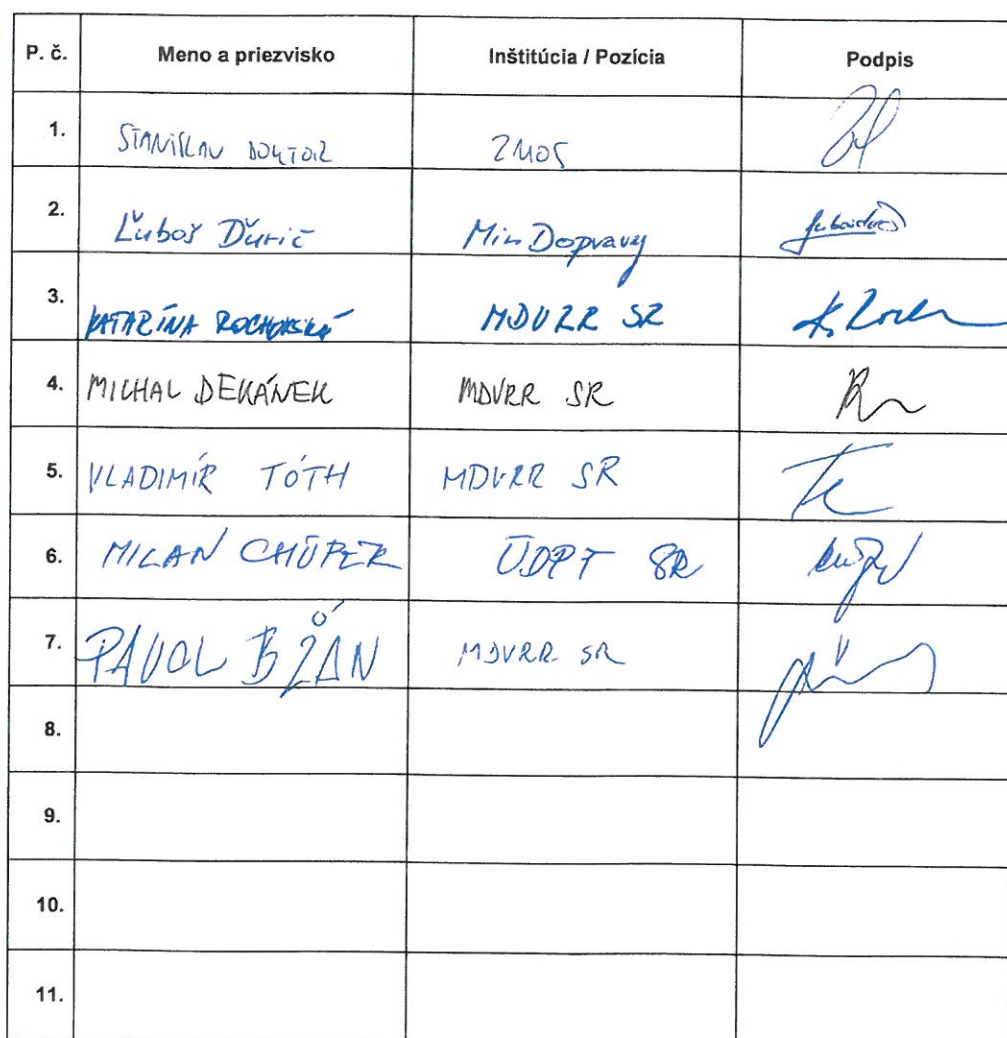 P. č. Meno a priezvisko Inštitúcia / Pozícia Podpis
1. STANISLAV DOKTOR ZMOS
2. Ľuboš Ďurič Min Dopravy
3. KATARÍNA MDVRR SR
4. MICHAL DEKÁNEK MDVRR SR
5. VLADIMÍR TÓTH MDVRR SR
6. MILAN CHÚPEK ÚDPT SR
7. PAVOL MDVRR SR
8.
9.
10.
11.